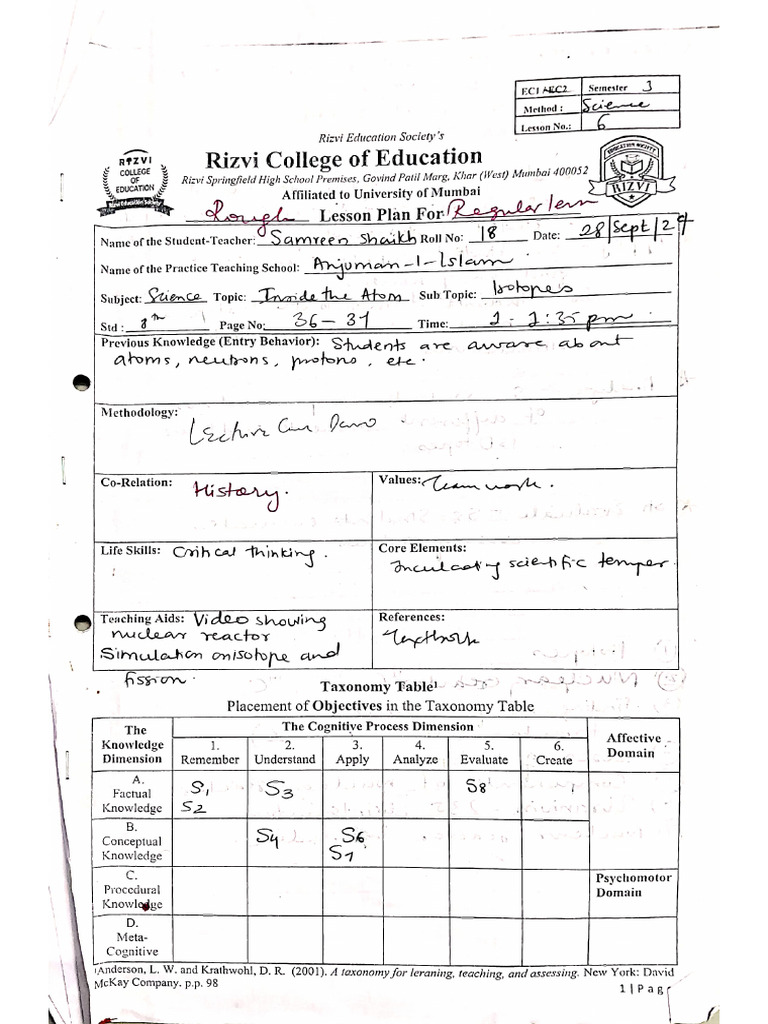 EC1 / EC2 Semester 3
Method : Science
Lesson No.: 6
Rizvi Education Society's
Rizvi College of Education
Rizvi Springfield High School Premises, Govind Patil Marg, Khar (West) Mumbai 400052
Affiliated to University of Mumbai
RIZVI
COLLEGE
OF
EDUCATION
EDUCATION SOCIETY
RIZVI
Rough Lesson Plan For Regular
Name of the Student-Teacher: Samreen Shaikh Roll No: 18 Date: 28/Sept/24
Name of the Practice Teaching School: Anjuman-I-Islam
Subject: Science Topic: Inside the Atom Sub Topic: Isotopes
Std : 8th Page No: 36-37 Time: 2:35 pm
Previous Knowledge (Entry Behavior): Students are aware about
atoms, neutrons, protons, etc.
Methodology:
Lecture Cum Demo
Co-Relation: History.
Values: Team work.
Life Skills: Critical thinking.
:
Core Elements:
Inculcating scientific temper.
Teaching Aids: Video showing
nuclear reactor
Simulation on isotope and
fission.
References:
Textbook
Taxonomy Table¹
Placement of Objectives in the Taxonomy Table
The Knowledge Dimension
The Cognitive Process Dimension
Affective Domain
1. Remember 2. Understand 3. Apply 4. Analyze 5. Evaluate 6. Create
A. Factual Knowledge S1 S2 S3 S8
B. Conceptual Knowledge S4 S6 S7
C. Procedural Knowledge
Psychomotor Domain
D. Meta-Cognitive
¹Anderson, L. W. and Krathwohl, D. R. (2001). A taxonomy for leraning, teaching, and assessing. New York: David
McKay Company. p.p. 98
1 | Pag